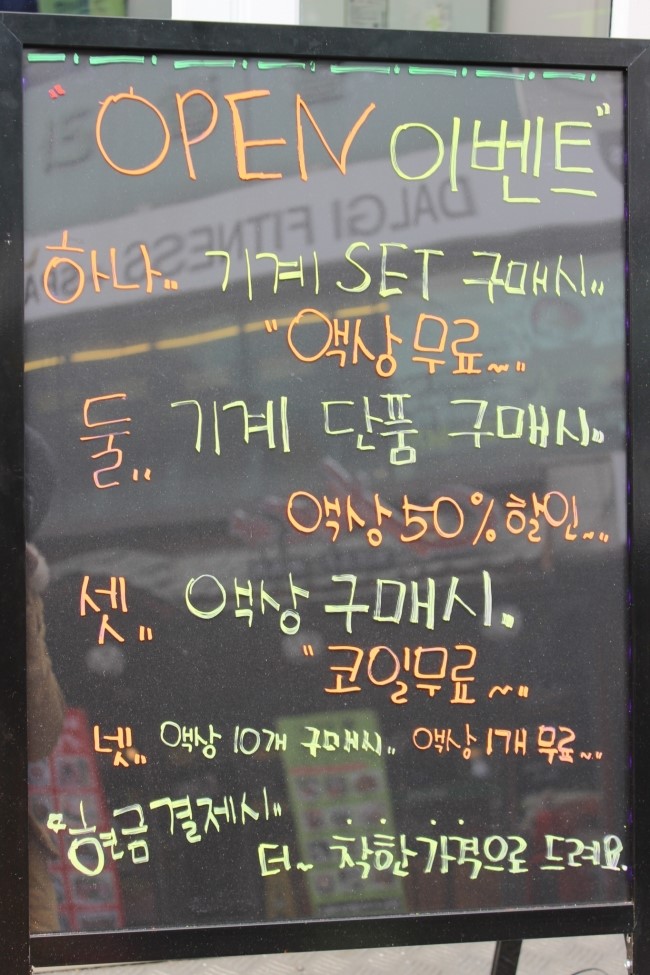 "OPEN 이벤트"
하나.. 기계 SET 구매시..
"액상무료~"
둘.. 기계 단품 구매시..
액상 50% 할인~"
셋.. 액상 구매시.
"코일무료~"
넷.. 액상 10개 구매시.. 액상 1개 무료~"
"현금결제시"
더~ 착한가격으로 드려요.
DALGI FITNESS